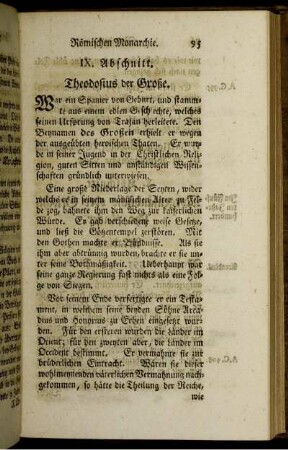 Römischen Monarchie. 95
IX. Abschnitt.
Theodosius der Große.
War ein Spanier von Geburt, und stamm-
te aus einem edlen Geschlechte, welches
seinen Ursprung von Trajan herleitete. Den
Beynamen des Großen erhielt er wegen
der ausgeübten heroischen Thaten. Er wur-
de in seiner Jugend in der Christlichen Reli-
gion, guten Sitten und anständigen Wissen-
schaften gründlich unterwiesen.
Eine große Niederlage der Scyten, wider
welche er in seinem männlichen Alter zu Fel-
de zog, bahnete ihm den Weg zur kaiserlichen
Würde. Er gab verschiedene weise Gesetze,
und ließ die Götzentempel zerstören. Mit
den Gothen machte er Bündnisse. Als sie
ihm aber abtrünnig wurden, brachte er sie un-
ter seine Bothmäßigkeit. Ueberhaupt war
seine ganze Regierung fast nichts als eine Fol-
ge von Siegen.
Vor seinem Ende verfertigte er ein Testa-
ment, in welchem seine beyden Söhne Arca-
dius und Honorius zu Erben eingesetzt wur-
den. Für den ersteren wurden die Länder im
Orient; für den zweyten aber, die Länder im
Occident bestimmt. Er vermahnte sie zur
brüderlichen Eintracht. Wären sie dieser
wohlmeynenden väterlichen Vermahnung nach-
gekommen, so hätte die Theilung der Reiche,
wie